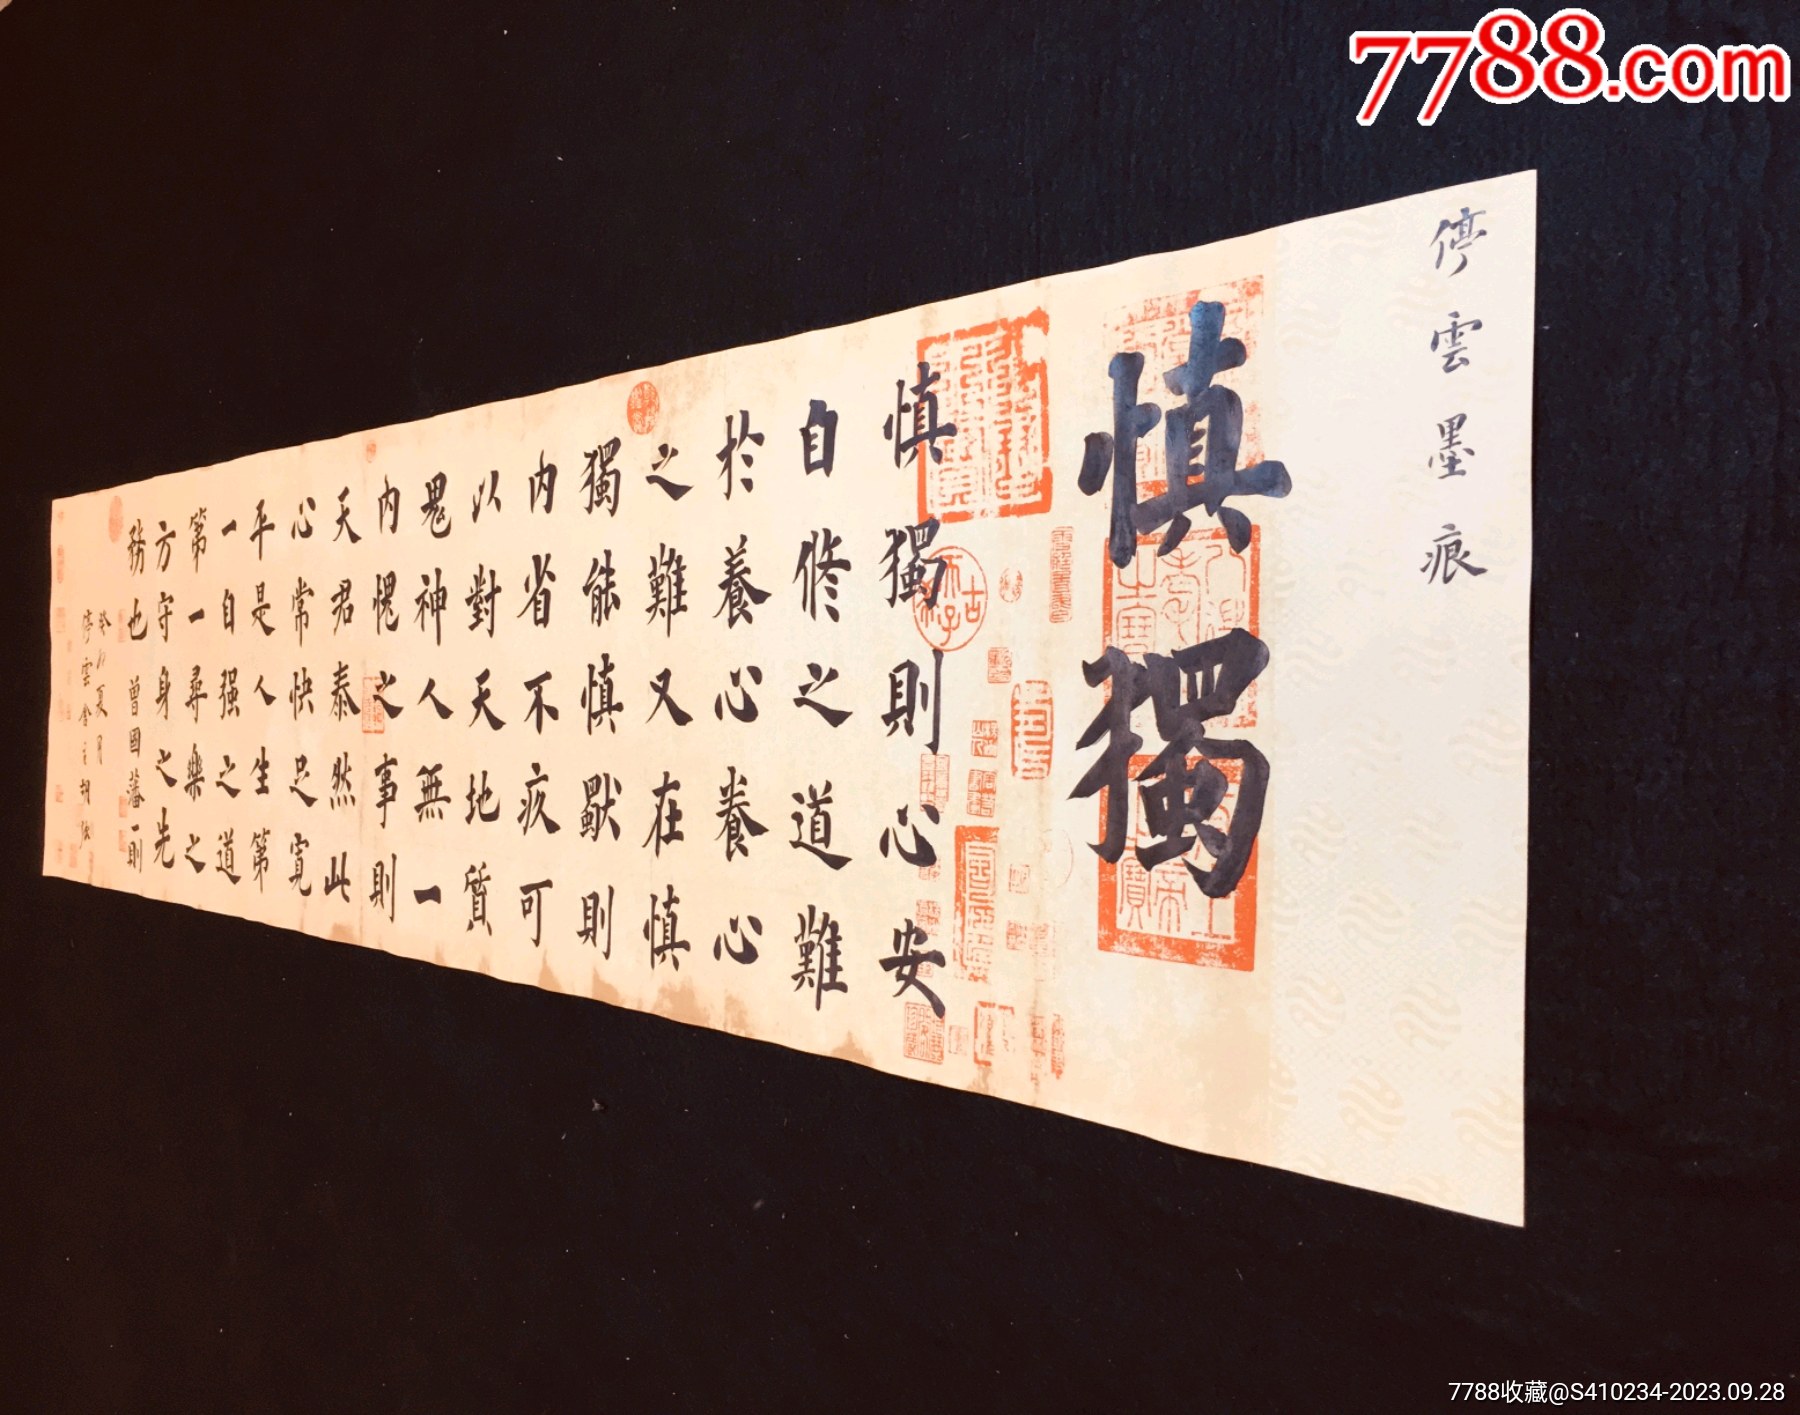 7788.com
停雲墨痕
慎獨
慎獨則心安
自修之道難
於養心養心
之難又在慎
獨能慎獸則
内省不疚可
以對天地質
鬼神人無一
内愧之事則
天君泰然此
心常快足寬
平是人生第
一自强之道
第一尋樂之
方守身之先
務也 曾國藩一則
癸卯夏月
停雲舍主胡
古稀天子
7788收藏@S410234-2023.09.28